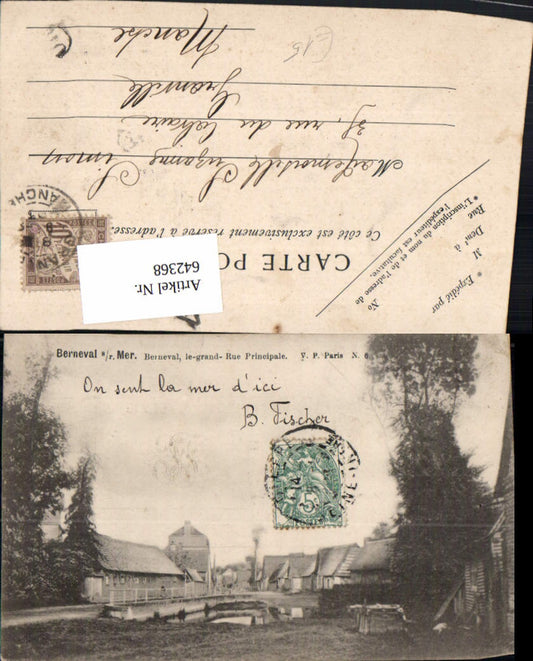 Manche
Granville
31, rue du Calvaire
Mademoiselle Suzanne Simon
Ce côté est exclusivement réservé à l'adresse.
CARTE PO
Artikel Nr.
642368
* Expédié par
M
Demt à
Rue No
* L'inscription du nom et de l'adresse de
l'expéditeur est facultative.
MANCHE
Berneval s/r. Mer. Berneval, le-grand- Rue Principale. V. P. Paris N. 6
On sent la mer d'ici
B. Fischer
5